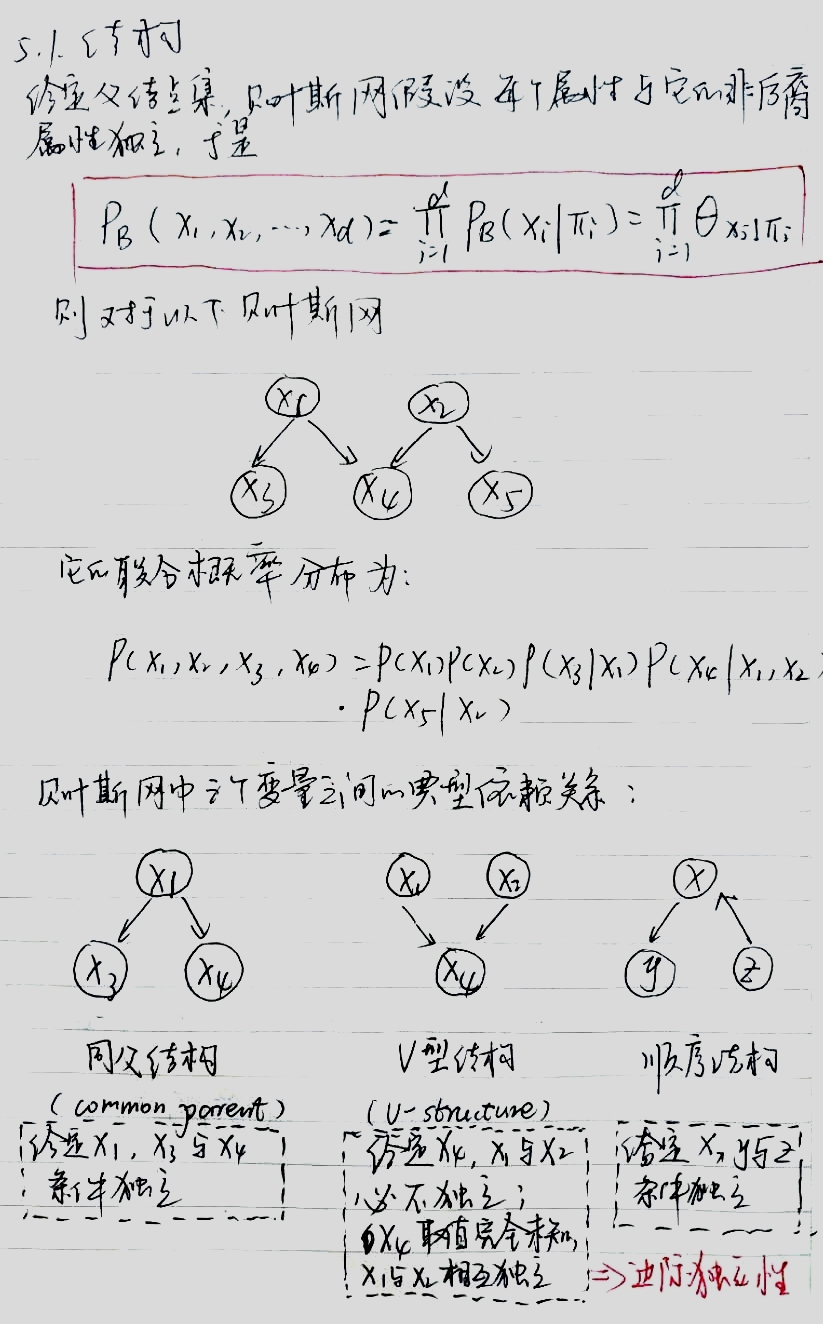 5.1. 结构
给定父结点集,贝叶斯网假设每个属性与它的非后裔
属性独立,于是
P_B(x₁,x₂,…,x_d)=∏_{i=1}^{d} P_B(x_i|π_i)=∏_{i=1}^{d} θ_{x_i|π_i}
则对于以下贝叶斯网
x₁ x₂
x₃ x₄ x₅
它的联合概率分布为:
P(x₁,x₂,x₃,x₄)=P(x₁)P(x₂)P(x₃|x₁)P(x₄|x₁,x₂)
· P(x₅|x₂)
贝叶斯网中三个变量之间的典型依赖关系:
x₁ x₁ x₂ x
x₃ x₄ x₄ y z
同父结构 V型结构 顺序结构
(common parent) (V-structure)
给定x₁, x₃与x₄
条件独立
给定x₄, x₁与x₂
必不独立;
x₄取值完全未知,
x₁与x₂相互独立
=>边际独立性
给定x, y与z
条件独立